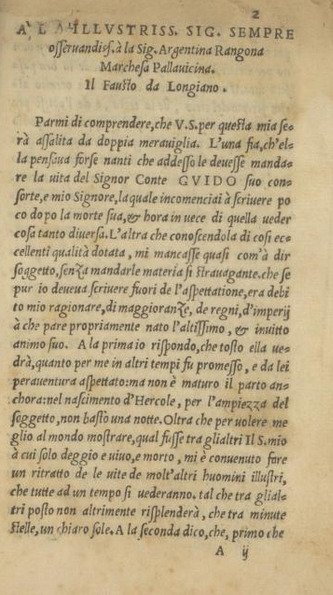 2
A L A ILLVSTRISS. SIG. SEMPRE
osseruandiss. à la Sig. Argentina Rangona
Marchesa Pallauicina.
Il Fausto da Longiano.
Parmi di comprendere, che V.S. per questa mia se=
rà assalita da doppia merauiglia. L'una fia, ch'el=
la pensaua forse nanti che adesso le deuesse manda=
re la uita del Signor Conte GVIDO suo con=
sorte, e mio Signore, la quale incomenciai à scriuere po
co dopo la morte sua, & hora in uece di quella ueder
cosa tanto diuersa. L'altra che conoscendola di cosi ec=
cellenti qualità dotata, mi mancasse quasi com'à dir
soggetto, senza mandarle materia si strauagante. che se
pur io deueua scriuere fuori de l'aspettatione, era debi
to mio ragionare, di maggioranze, de regni, d'imperij
à che pare propriamente nato l'altissimo, & inuitto
animo suo. A la prima io rispondo, che tosto ella ue=
drà, quanto per me in altri tempi fu promesso, e da lei
perauentura aspettato: ma non è maturo il parto an=
chora: nel nascimento d'Hercole, per l'ampiezza del
soggetto, non bastò una notte. Oltra che per uolere me
glio al mondo mostrare, qual fusse tra glialtri Il S. mio
à cui solo deggio e uiuo, e morto, mi è conuenuto fare
un ritratto de le uite de molt'altri huomini illustri,
che tutte ad un tempo si uederanno. tal che tra glial=
tri posto non altrimente risplenderà, che tra minute
stelle, un chiaro sole. A la seconda dico, che, primo che
A ij